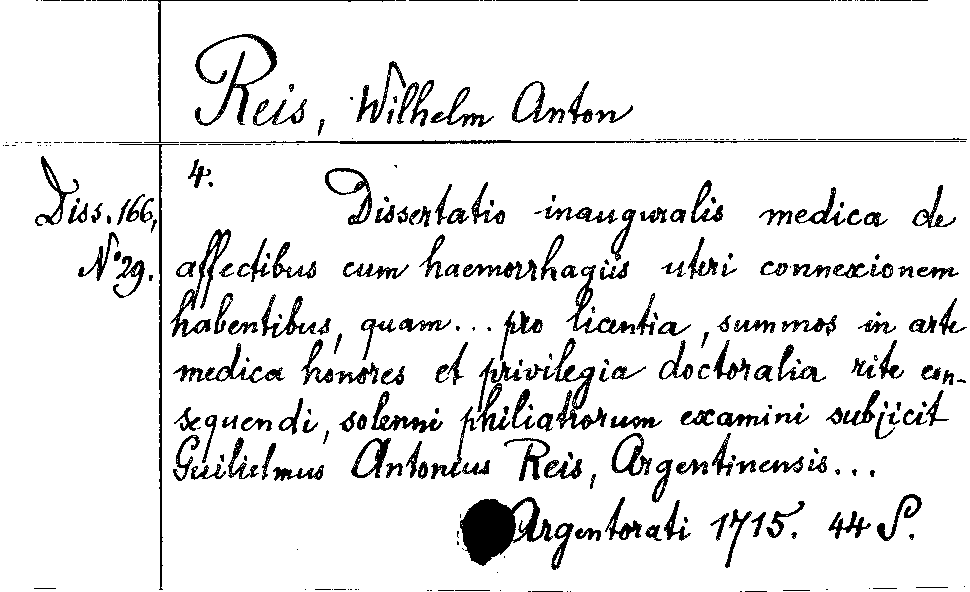 Reis, Wilhelm Anton
Diss. 166,
N° 29.
4.
Dissertatio inauguralis medica de
affectibus cum haemorrhagiis uteri connexionem
habentibus, quam... pro licentia, summos in arte
medica honores et privilegia doctoralia rite con-
sequendi, solenni philiatrorum examini subjicit
Guilielmus Antonius Reis, Argentinensis...
Argentorati 1715. 44 S.